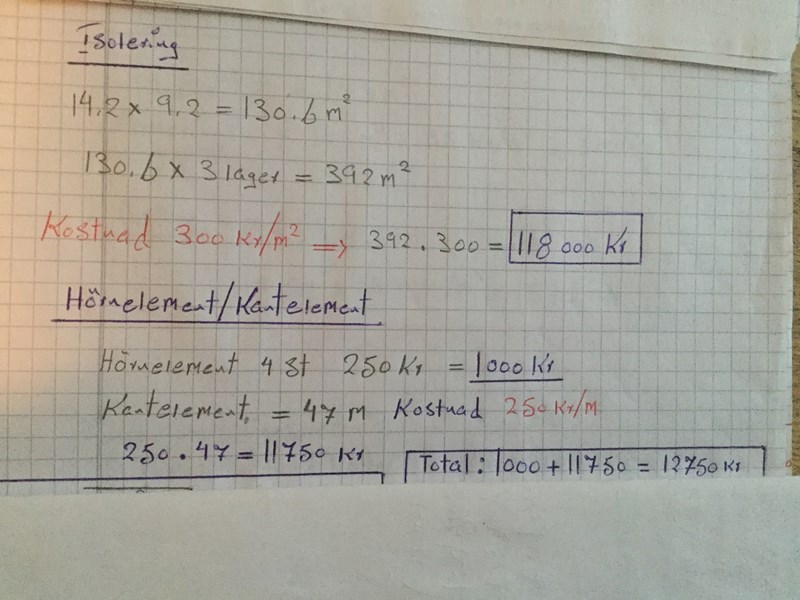 Isolering
14.2 x 9.2 = 130.6 m²
130.6 x 3 lager = 392 m²
Kostnad 300 Kr/m² => 392 . 300 = 118 000 Kr
Hörnelement/Kantelement
Hörnelement 4 st 250 Kr = 1000 Kr
Kantelement = 47 m Kostnad 250 Kr/m
250 . 47 = 11750 Kr
Total: 1000 + 11750 = 12750 Kr